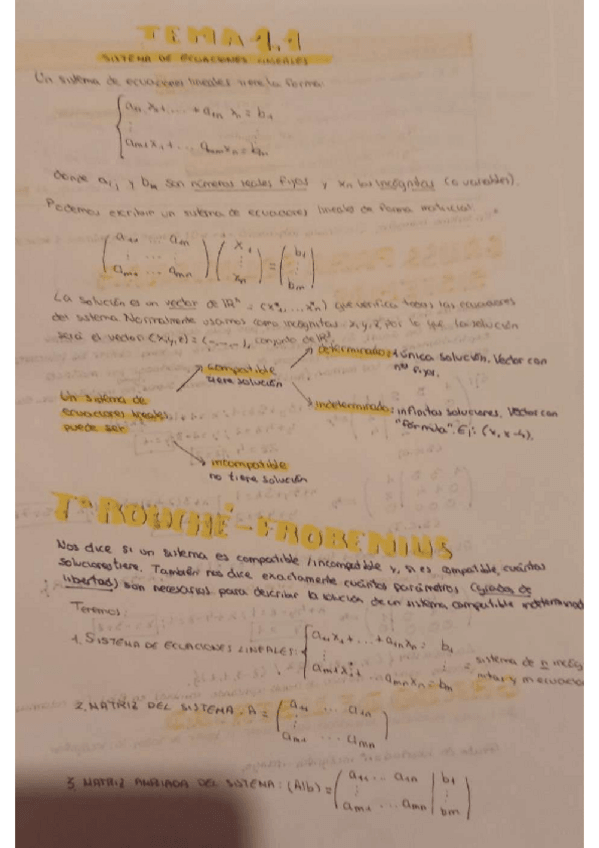 TEMA 1.1
SISTEMA DE ECUACIONES LINEALES
Un sistema de ecuaciones lineales tiene la forma:
a₁₁ x₁ + ... + a₁ₙ xₙ = b₁
⋮
aₘ₁ x₁ + ... aₘₙ xₙ = bₘ
donde aᵢⱼ y bₘ son números reales fijos y xₙ las incógnitas (o variables).
Podemos escribir un sistema de ecuaciones lineales de forma matricial:
(a₁₁ ... a₁ₙ) (x₁) (b₁)
(⋮ ... ⋮) (⋮) = (⋮)
(aₘ₁ ... aₘₙ) (xₙ) (bₘ)
La solución es un vector de ℝⁿ, (x₁*, ... xₙ*) que verifica todas las ecuaciones
del sistema. Normalmente usamos como incógnitas x, y, z, por lo que la solución
será el vector (x,y,z) = (-,-,-), conjunto de
compatible
tiene solución
determinado: 1 única solución. Vector con
nºs fijos.
Un sistema de
ecuaciones lineales
puede ser
indeterminado: infinitas soluciones. Vector con
"fórmula". Ej: (x, x-4).
incompatible
no tiene solución
Tª ROUCHÉ-FROBENIUS
Nos dice si un sistema es compatible/incompatible y, si es compatible, cuántas
soluciones tiene. También nos dice exactamente cuántos parámetros (grados de
libertad) son necesarios para describir la solución de un sistema compatible indeterminad
Tenemos:
1. SISTEMA DE ECUACIONES LINEALES:
a₁₁ x₁ + ... + a₁ₙ xₙ = b₁
⋮ ⋮ = sistema de n incóg
aₘ₁ x₁ + ... aₘₙ xₙ = bₘ nitas y m ecuacio
2. MATRIZ DEL SISTEMA: A = (a₁₁ ... a₁ₙ)
⋮
(aₘ₁ ... aₘₙ)
3. MATRIZ AMPLIADA DEL SISTEMA: (A|b) = (a₁₁ ... a₁ₙ | b₁)
⋮ ⋮
(aₘ₁ ... aₘₙ | bₘ)